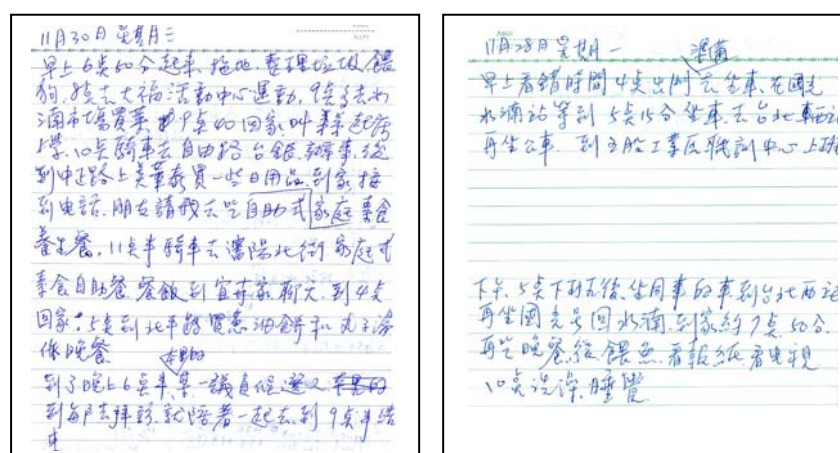 11月30日 星期三
早上6点50分起來. 拖地. 整理垃圾 餵
狗. 8点去大福活動中心運動. 9点多去水
湳市場買菜 9点40回家. 叫 起床
上學. 10点騎車去自由路台銀. 辦事. 後
到中正路上 買一些日用品. 到家. 接
到電話. 朋友請我去吃自助式 家庭 素食
養生餐. 11点半騎車去瀋陽北街 家庭式
素食自助餐. 餐飯到宜 家. 聊天. 到4点
回家. 5点到北平路買蔥油餅和丸子湯
做晚餐.
到了晚上6点半. 某一議員候選人
到每戶去拜訪. 就陪著一起去. 到9点半結
束
11月28日 星期一
準備
早上看錯時間 4点出門去坐車. 在國光
水湳站等到5点15分坐車. 去台北車站
再坐公車. 到 工業區職訓中心上班
下午. 5点下班後. 坐同事的車到台北西站
再坐國光号回水湳. 到家約7点50分.
再吃晚餐. 後餵魚. 看報紙 看電視.
10点洗澡. 睡覺.